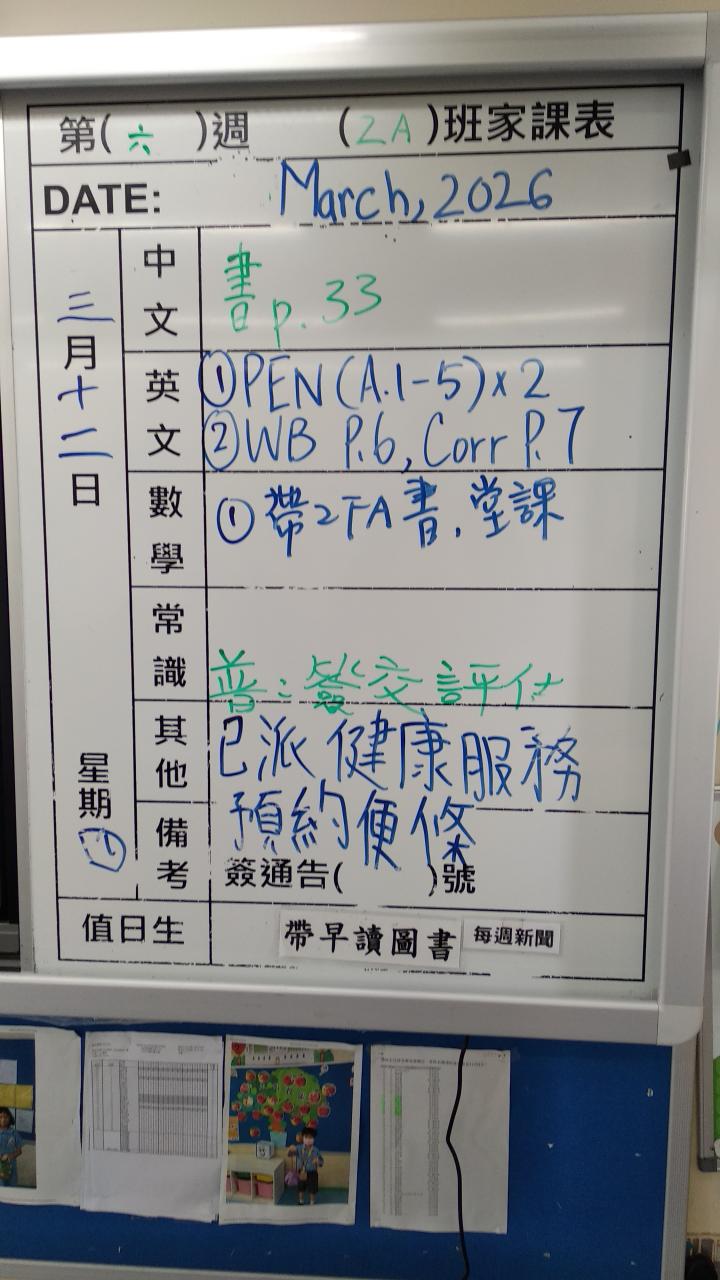 第(六)週 (2A)班家課表
DATE: March, 2026
三月十二日
星期
中文
書p. 33
英文
①PEN(A.1-5)x2
②WB P.6, Corr P.7
數學
①帶2TA書,堂課
常識
普:簽交評估
其他
已派健康服務
預約便條
備考
簽通告( )號
值日生
帶早讀圖書 每週新聞